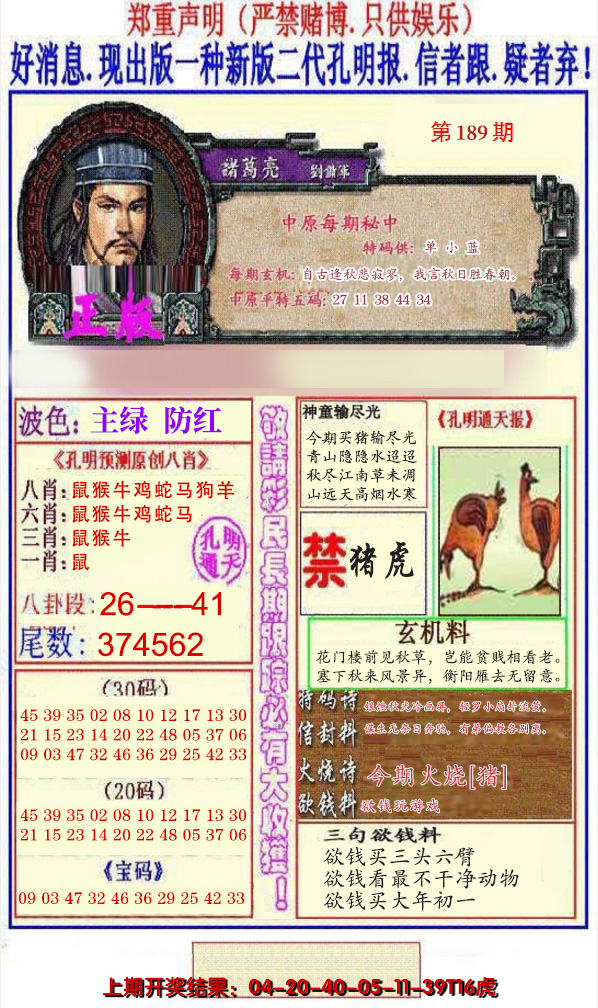 郑重声明（严禁赌博.只供娱乐）
好消息.现出版一种新版二代孔明报.信者跟.疑者弃！
第189期
諸葛亮 劉備軍
中原每期秘中
特码供：单小蓝
每期玄机：自古逢秋悲寂寥，我言秋日胜春朝。
中原平特五码：27 11 38 44 34
正版
波色：主绿 防红
《孔明预测原创八肖》
八肖：鼠猴牛鸡蛇马狗羊
六肖：鼠猴牛鸡蛇马
三肖：鼠猴牛
一肖：鼠
孔明
通天
八卦段：26——41
尾数：374562
（30码）
45 39 35 02 08 10 12 17 13 30
21 15 23 14 20 22 48 05 37 06
09 03 47 32 46 36 29 25 42 33
（20码）
45 39 35 02 08 10 12 17 13 30
21 15 23 14 20 22 48 05 37 06
《宝码》
09 03 47 32 46 36 29 25 42 33
敬請彩民長期跟踪必有大收獲！
神童输尽光
今期买猪输尽光
青山隐隐水迢迢
秋尽江南草未凋
山远天高烟水寒
《孔明通天报》
禁 猪虎
玄机料
花门楼前见秋草，岂能贫贱相看老。
塞下秋来风景异，衡阳雁去无留意。
特码诗 银烛秋光冷画屏，轻罗小扇扑流萤。
信封料
火烧诗 今期火烧[猪]
欲钱料 欲钱玩游戏
三句欲钱料
欲钱买三头六臂
欲钱看最不干净动物
欲钱买大年初一
上期开奖结果：04-20-40-05-11-39T16虎